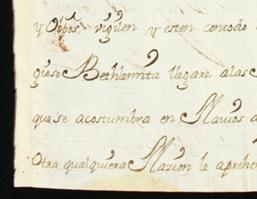 y Obpos, vigilen y esten con
gioso Bethlemita llegare a las
que se acostumbra en Navios
Otra qualquiera Nazion le aprehe